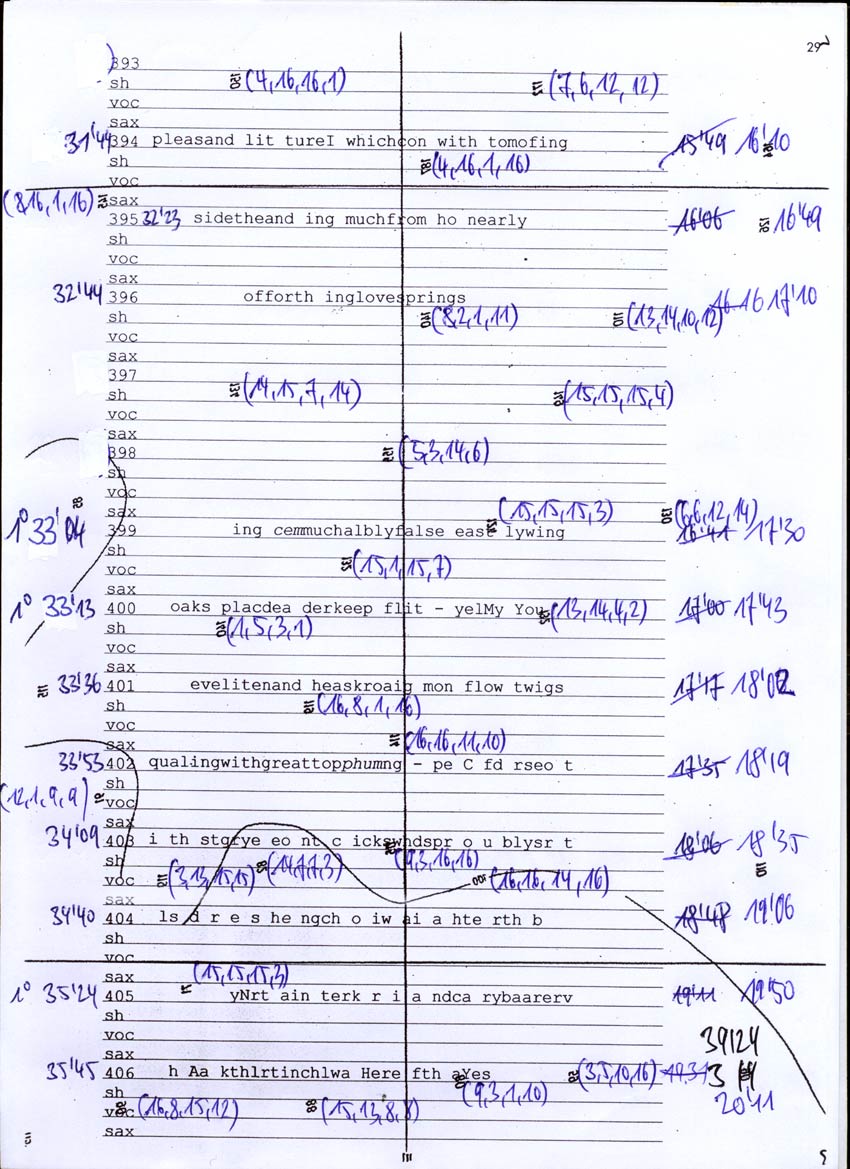 29
393
sh (4,16,16,1) (7,6,12,12)
voc
sax
31'44 394 pleasand lit tureI whichcon with tomofing 15'49 16'10
sh (4,16,1,16)
voc
(8,16,1,16) sax
395 32'23 sidetheand ing muchfrom ho nearly 16'06 16'49
sh
voc
sax
32'44 396 offorth inglovesprings 16 16 17'10
sh (8,2,1,11) (13,14,10,12)
voc
sax
397
sh (14,15,7,14) (15,15,15,4)
voc
sax
398 (5,3,14,6)
sh
voc
sax (15,15,15,3) (6,6,12,14)
1° 33'04 399 ing cemmuchalblyfalse east lywing 16'41 17'30
sh
voc (15,1,15,7)
sax
1° 33'13 400 oaks placdea derkeep flit - yelMy You (13,14,4,2) 17'00 17'43
sh (1,5,3,1)
voc
sax
33'36 401 evelitenand heaskroaig mon flow twigs 17'17 18'02
sh (16,8,1,16)
voc
sax (16,16,11,10)
33'53 402 qualingwithgreattopphumng - pe C fd rseo t 17'35 18'19
sh
(12,1,9,9) voc
sax
34'09 403 i th storye eo nt c ickswhdspr o u blysr t 18'06 18'35
sh (9,3,16,16)
voc (3,13,15,15) (14,7,7,3) 100 (16,16,14,16)
sax
34'40 404 ls d r e s he ngch o iw ai a hte rth b 18'48 19'06
sh
voc
sax (15,15,15,3)
1° 35'24 405 yNrt ain terk r i a ndca rybaarerv 19'11 19'50
sh
voc
sax 39'24
35'45 406 h Aa kthlrtinchlwa Here fth aYes (3,5,10,16) 19'31
sh (9,3,1,10)
voc (16,8,15,12) (15,13,8,8) 20'11
sax